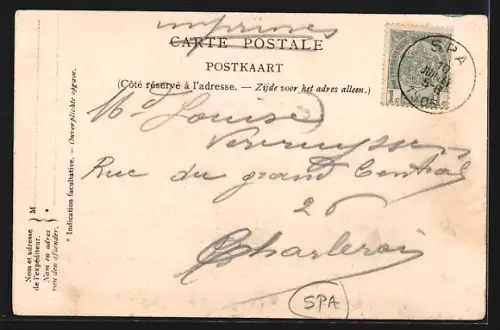 imprimés
CARTE POSTALE
POSTKAART
(Côté réservé à l'adresse. — Zijde voor het adres alleen.)
SPA
1
Louise
Rue du grand Central
26
Charleroi
SPA
* Indication facultative. — Onverplichte opgave.
M *
Nom et adresse
de l'expéditeur.
Naam en adres
van den afzender.